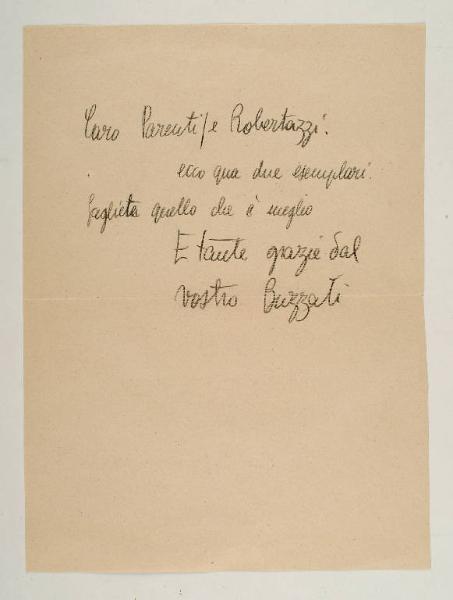 Caro Parenti/e Robertazzi.
ecco qua due esemplari.
Tagliete quello che è meglio
E tante grazie dal
vostro Buzzati